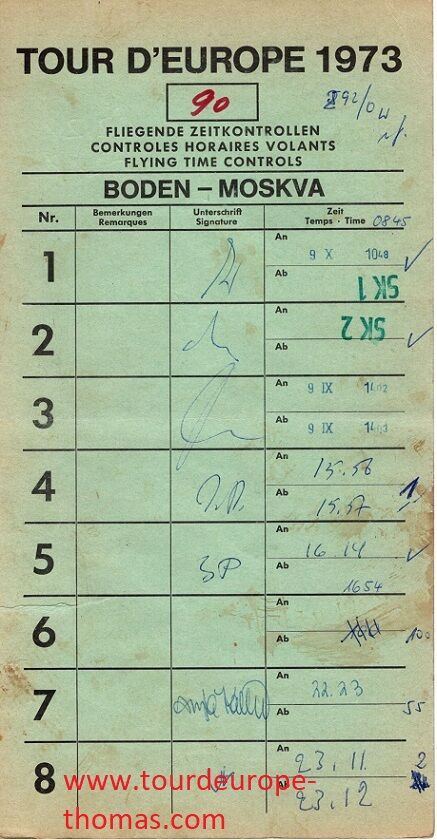 TOUR D'EUROPE 1973
90
FLIEGENDE ZEITKONTROLLEN
CONTROLES HORAIRES VOLANTS
FLYING TIME CONTROLS
BODEN – MOSKVA
Nr. Bemerkungen Remarques Unterschrift Signature Zeit Temps · Time 0845
1 An 9 X 1048
Ab SK 1
2 An SK 2
Ab
3 An 9 IX 1402
Ab 9 IX 1403
4 An 15.56
Ab 15.57 1
5 An 16.14
Ab 1654
6 An
Ab 100
7 An 22.23
Ab 55
8 An 23.11 2
Ab 23.12
www.tourdeurope-
thomas.com